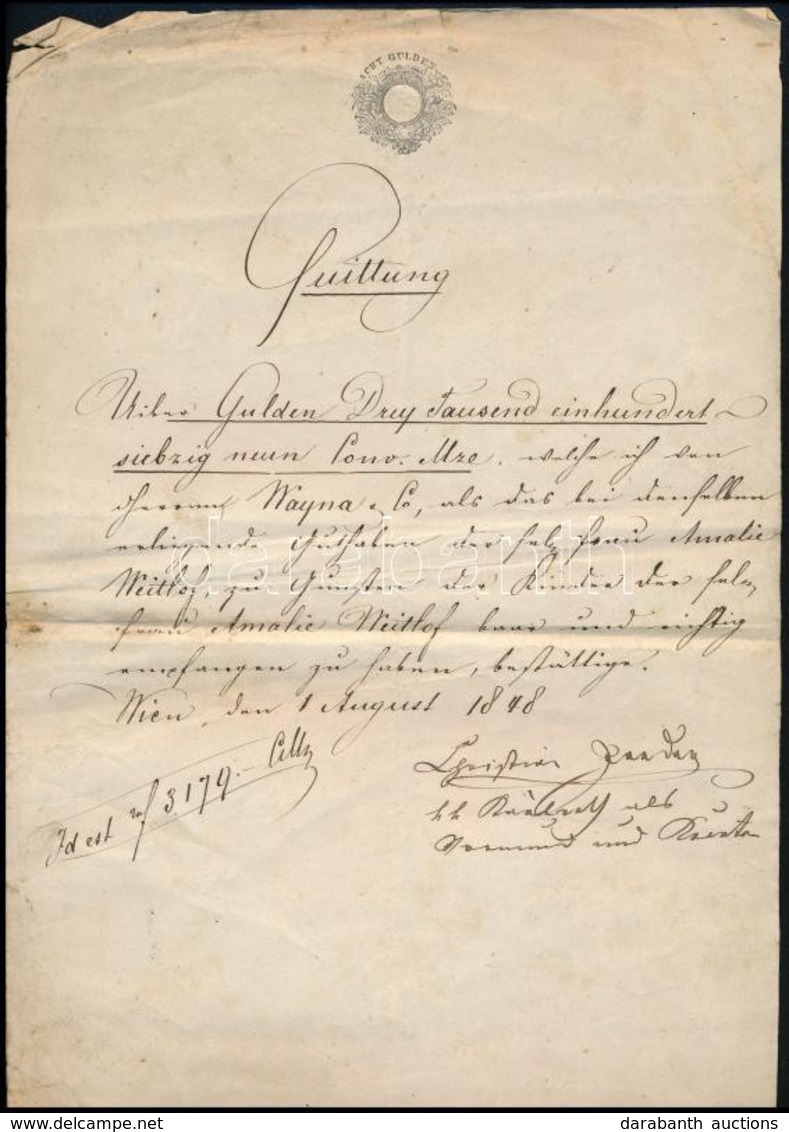 ACHT GULDEN
Quittung
Uiber Gulden Drey Tausend einhundert
siebzig neun Conv. Mze. welche ich von
Herrn Wayna & Co, als das bei denselben
erliegende Guthaben der sel. Frau Amalie
Weitlof, zu Gunsten der Kinder der sel.
Frau Amalie Weitlof baar und richtig
empfangen zu haben, bestättige.
Wien, den 1 August 1848
Christian
Id est f 3.179.- CMz
kk als
Vormund und Kurator
darabanth
darabanth auctions